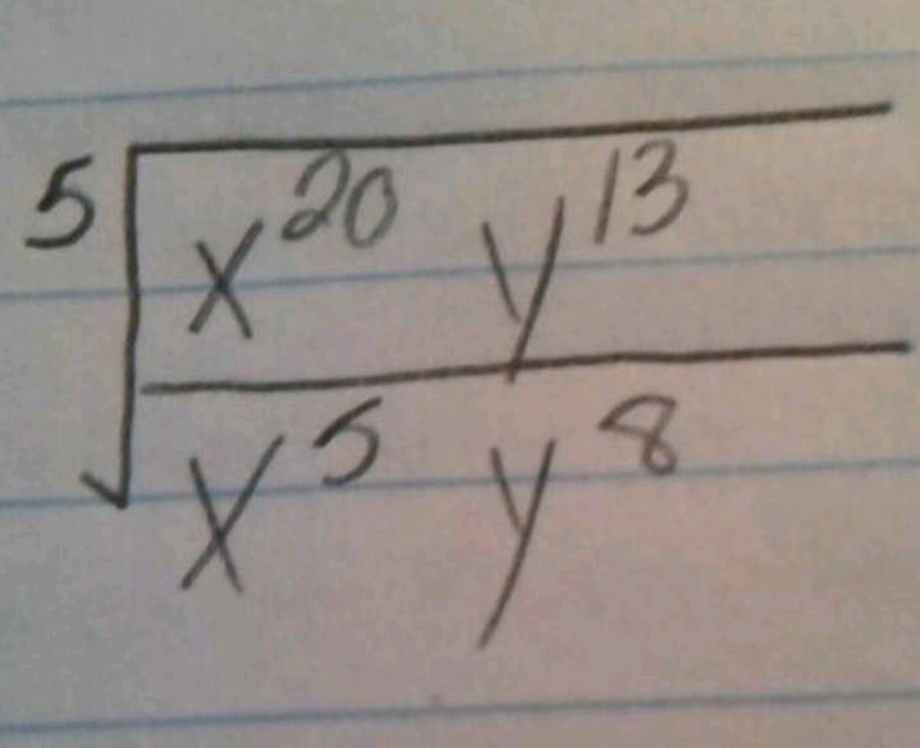 5√ x²⁰ y¹³
x⁵ y⁸